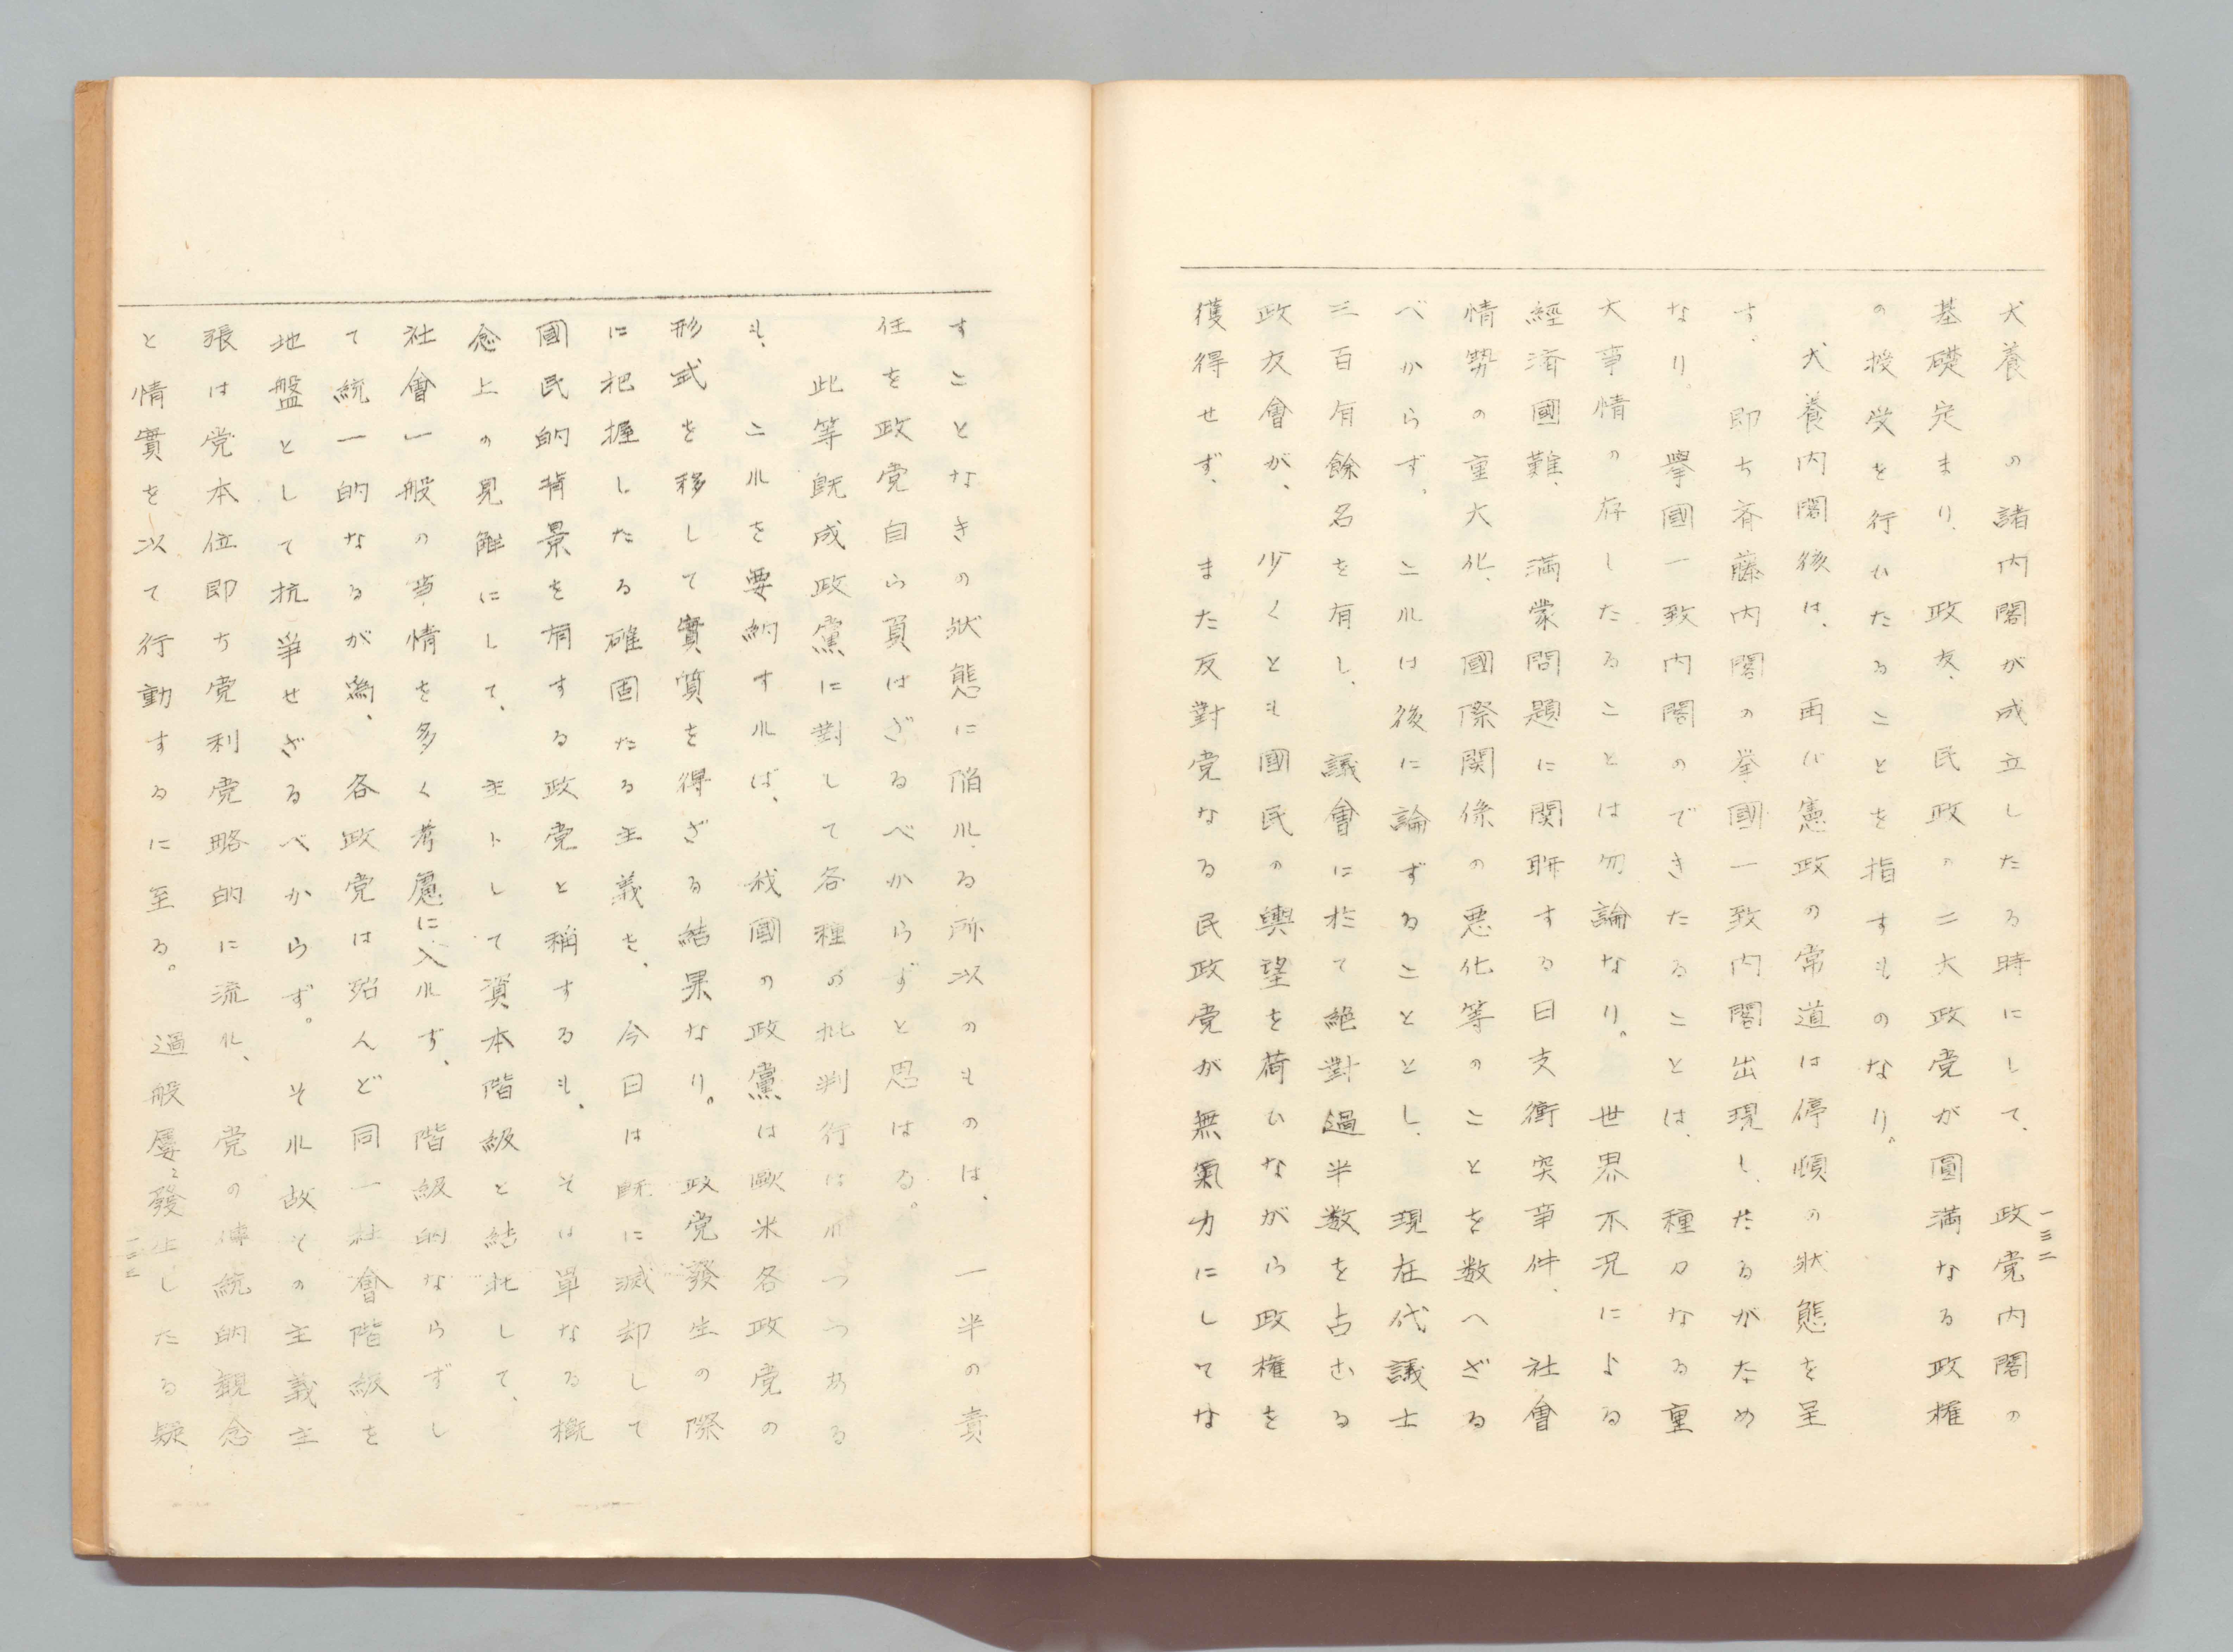 犬養の諸内閣が成立したる時にして、政党内閣の
基礎定まり、政友、民政の二大政党が圓満なる政権
の授受を行ひたることを指すものなり。
犬養内閣後は、再び憲政の常道は停頓の状態を呈
す、即ち斉藤内閣の挙國一致内閣出現し、たるがため
なり。擧國一致内閣のできたることは、種々なる重
大事情の存したることは勿論なり。世界不況による
經済國難、満蒙問題に関聯する日支衝突事件、社會
情勢の重大化、國際関係の悪化等のことを数へざる
べからず、これは後に論ずることとし、現在代議士
三百有餘名を有し、議會に於て絶對過半数を占むる
政友會が、少くとも國民の輿望を荷ひながら政権を
獲得せず、また反對党なる民政党が無氣力にしてな
一三二
すことなきの状態に陥れる所以のものは、一半の責
任を政党自ら負はざるべからずと思はる。
此等既成政黨に對して各種の批判行はれつつある
も、これを要納すれば、我國の政黨は歐米各政党の
形式を移して實質を得ざる結果なり。政党發生の際
に把握したる確固たる主義を、今日は既に滅却して
國民的背景を有する政党と稱するも、そは單なる概
念上の見解にして、主トして資本階級と結托して、
社會一般の事情を多く考慮に入れず、階級的ならずし
て統一的なるが為、各政党は殆んど同一社會階級を
地盤として抗爭せざるべからず。それ故その主義主
張は党本位即ち党利党略的に流れ、党の傳統的観念
と情實を以て行動するに至る。過般屡〻發生したる疑
一三三